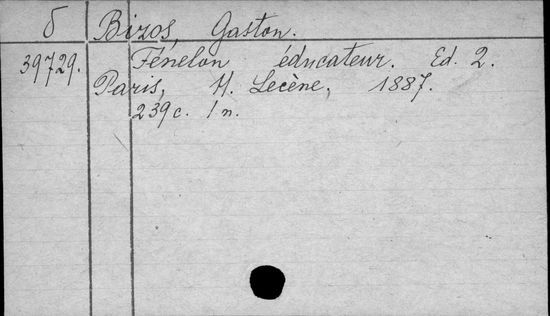 δ Bizos, Gaston.
39729. Fénelon éducateur. Ed. 2.
Paris, H. Lecène, 1887.
239 c. 1 n.